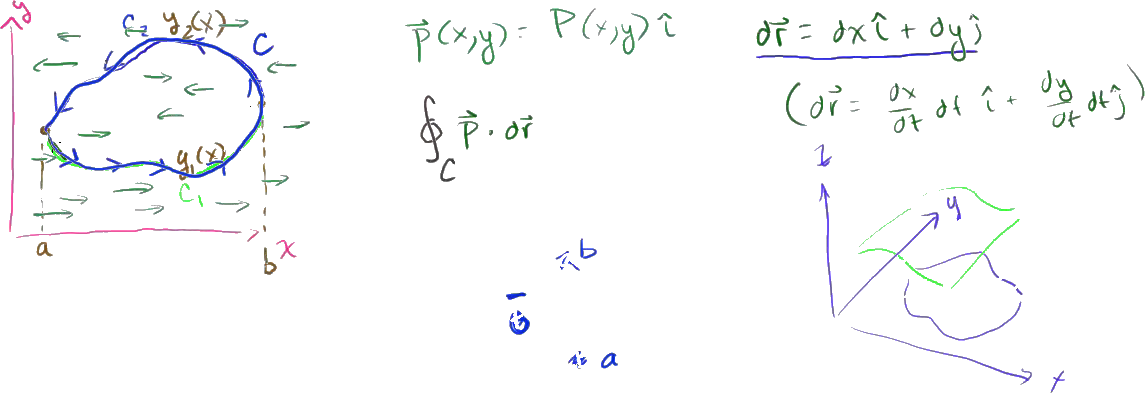 y
C₂ y₂(x)
C
y₁(x)
C₁
a
b
x
P⃗(x,y) = P(x,y) î
∮ P⃗ · dr⃗
C
b
a
dr⃗ = dx î + dy ĵ
(dr⃗ = dx/dt dt î + dy/dt dt ĵ)
z
y
x